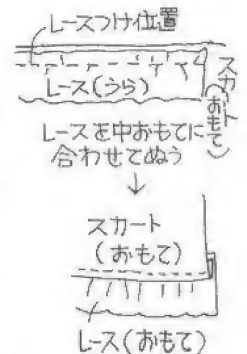 レースつけ位置
レース(うら)
スカート(おもて)
レースを中おもてに
合わせてぬう
↓
スカート
(おもて)
レース(おもて)